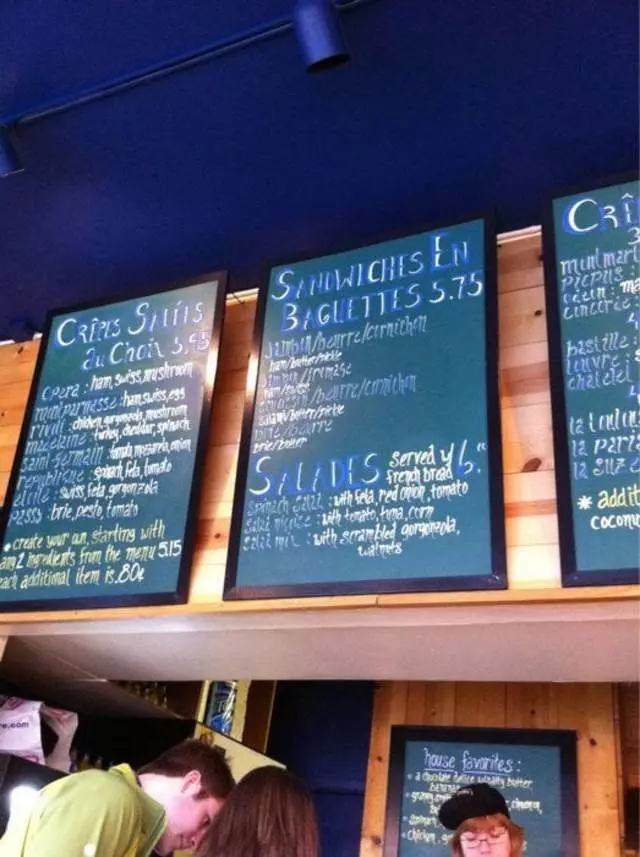 CRÊPES SALÉES
AU CHOIX 5.95
OPERA : ham, swiss, mushroom
montparnasse : ham, swiss, egg
rivoli : chicken, gorgonzola, mushroom
madelaine : turkey, cheddar, spinach
saint-germain : tomato, mozzarella, onion
republique : spinach, feta, tomato
etoile : swiss, feta, gorgonzola
passy : brie, pesto, tomato
* create your own, starting with
any 2 ingredients from the menu 5.15
each additional item is .80¢
SANDWICHES EN
BAGUETTES 5.75
jambon/beurre/cornichon
ham/butter/pickle
jambon/fromage
ham/swiss
/beurre/cornichon
salami/butter/pickle
brie/beurre
brie/butter
SALADES served w/ 6."
french bread
spinach salad : with feta, red onion, tomato
salad niçoise : with tomato, tuna, corn
salad mix : with scrambled gorgonzola,
walnuts
CRÊ
3
montmart
picpus :
odeon : ma
concorde
bastille :
louvre :
chatelet
4
la
la
la
* addit
coconu
re.com
house favorites :
• a chocolate delice w/ butter
banana
• granny smith
• spinach
• chicken, g